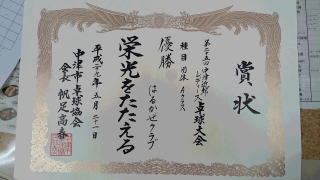 賞状
第二十五回中津近郊
レディース卓球大会
種目 団体 Aクラス
優勝
はるかぜクラブ
栄光をたたえる
平成二十九年五月二十一日
中津市卓球協会
会長 帆足高春